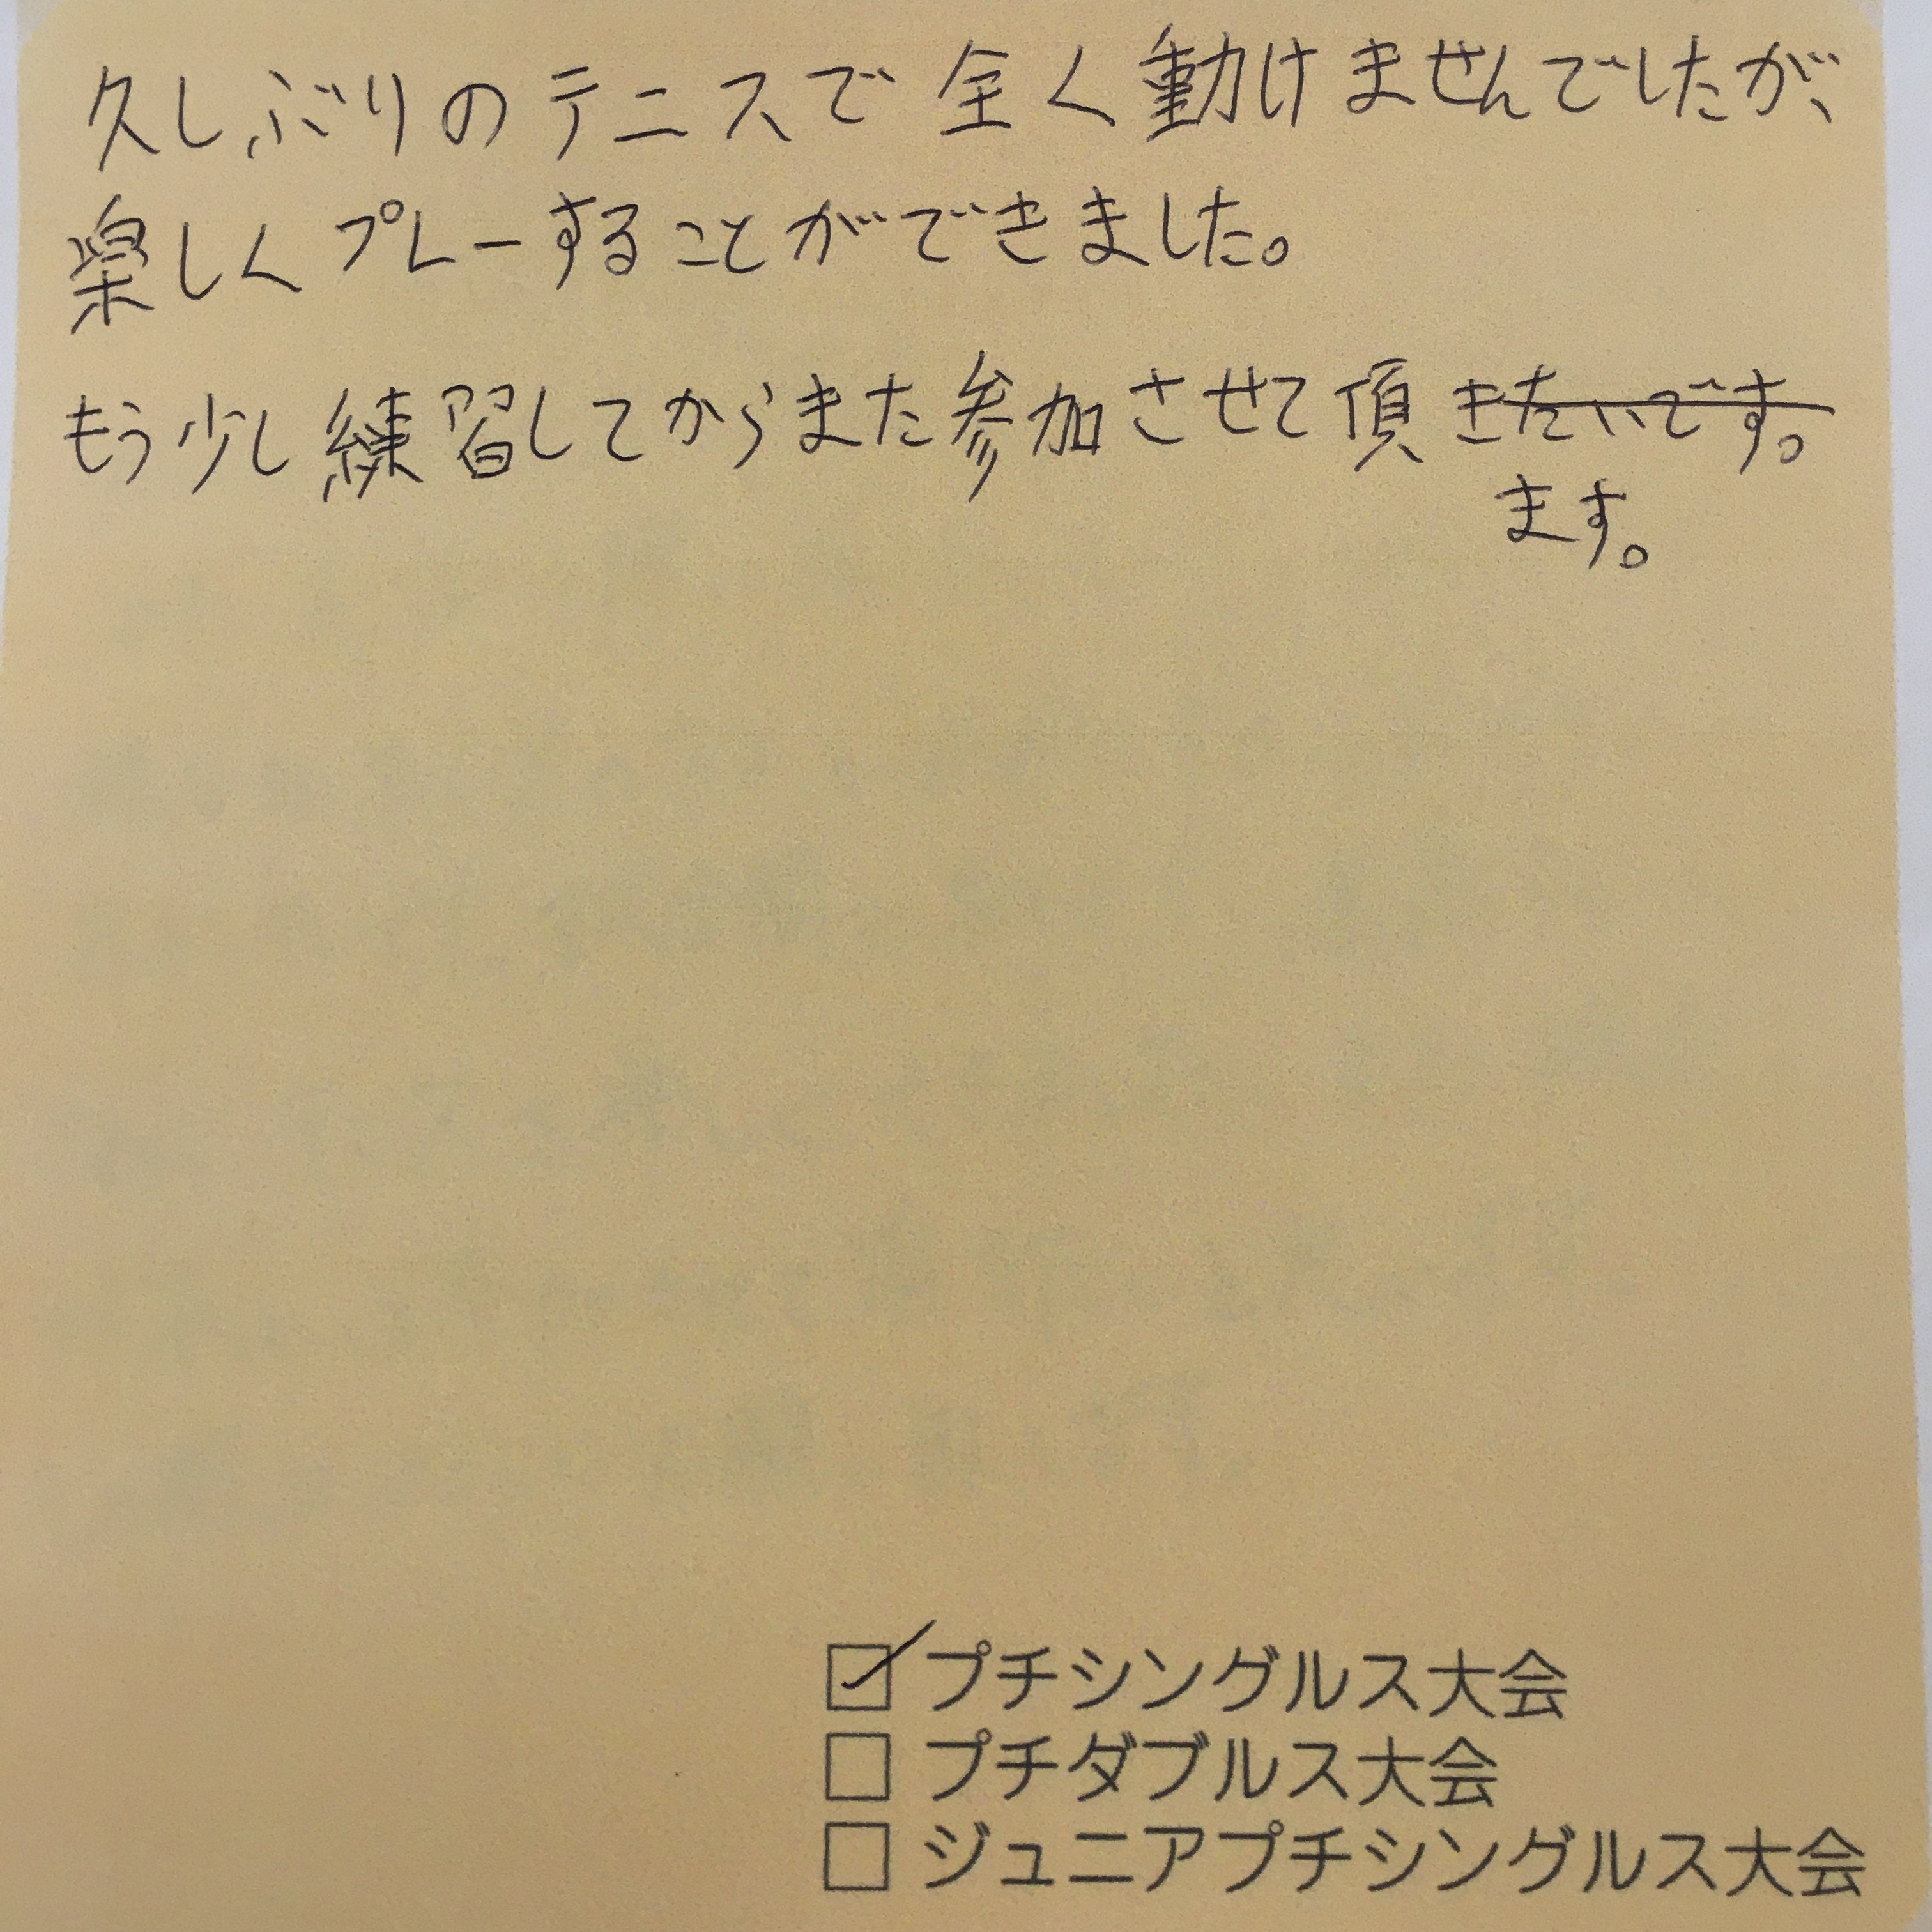 久しぶりのテニスで全く動けませんでしたが、
楽しくプレーすることができました。
もう少し練習してからまた参加させて頂きたいです。
ます。
☑プチシングルス大会
☐プチダブルス大会
☐ジュニアプチシングルス大会